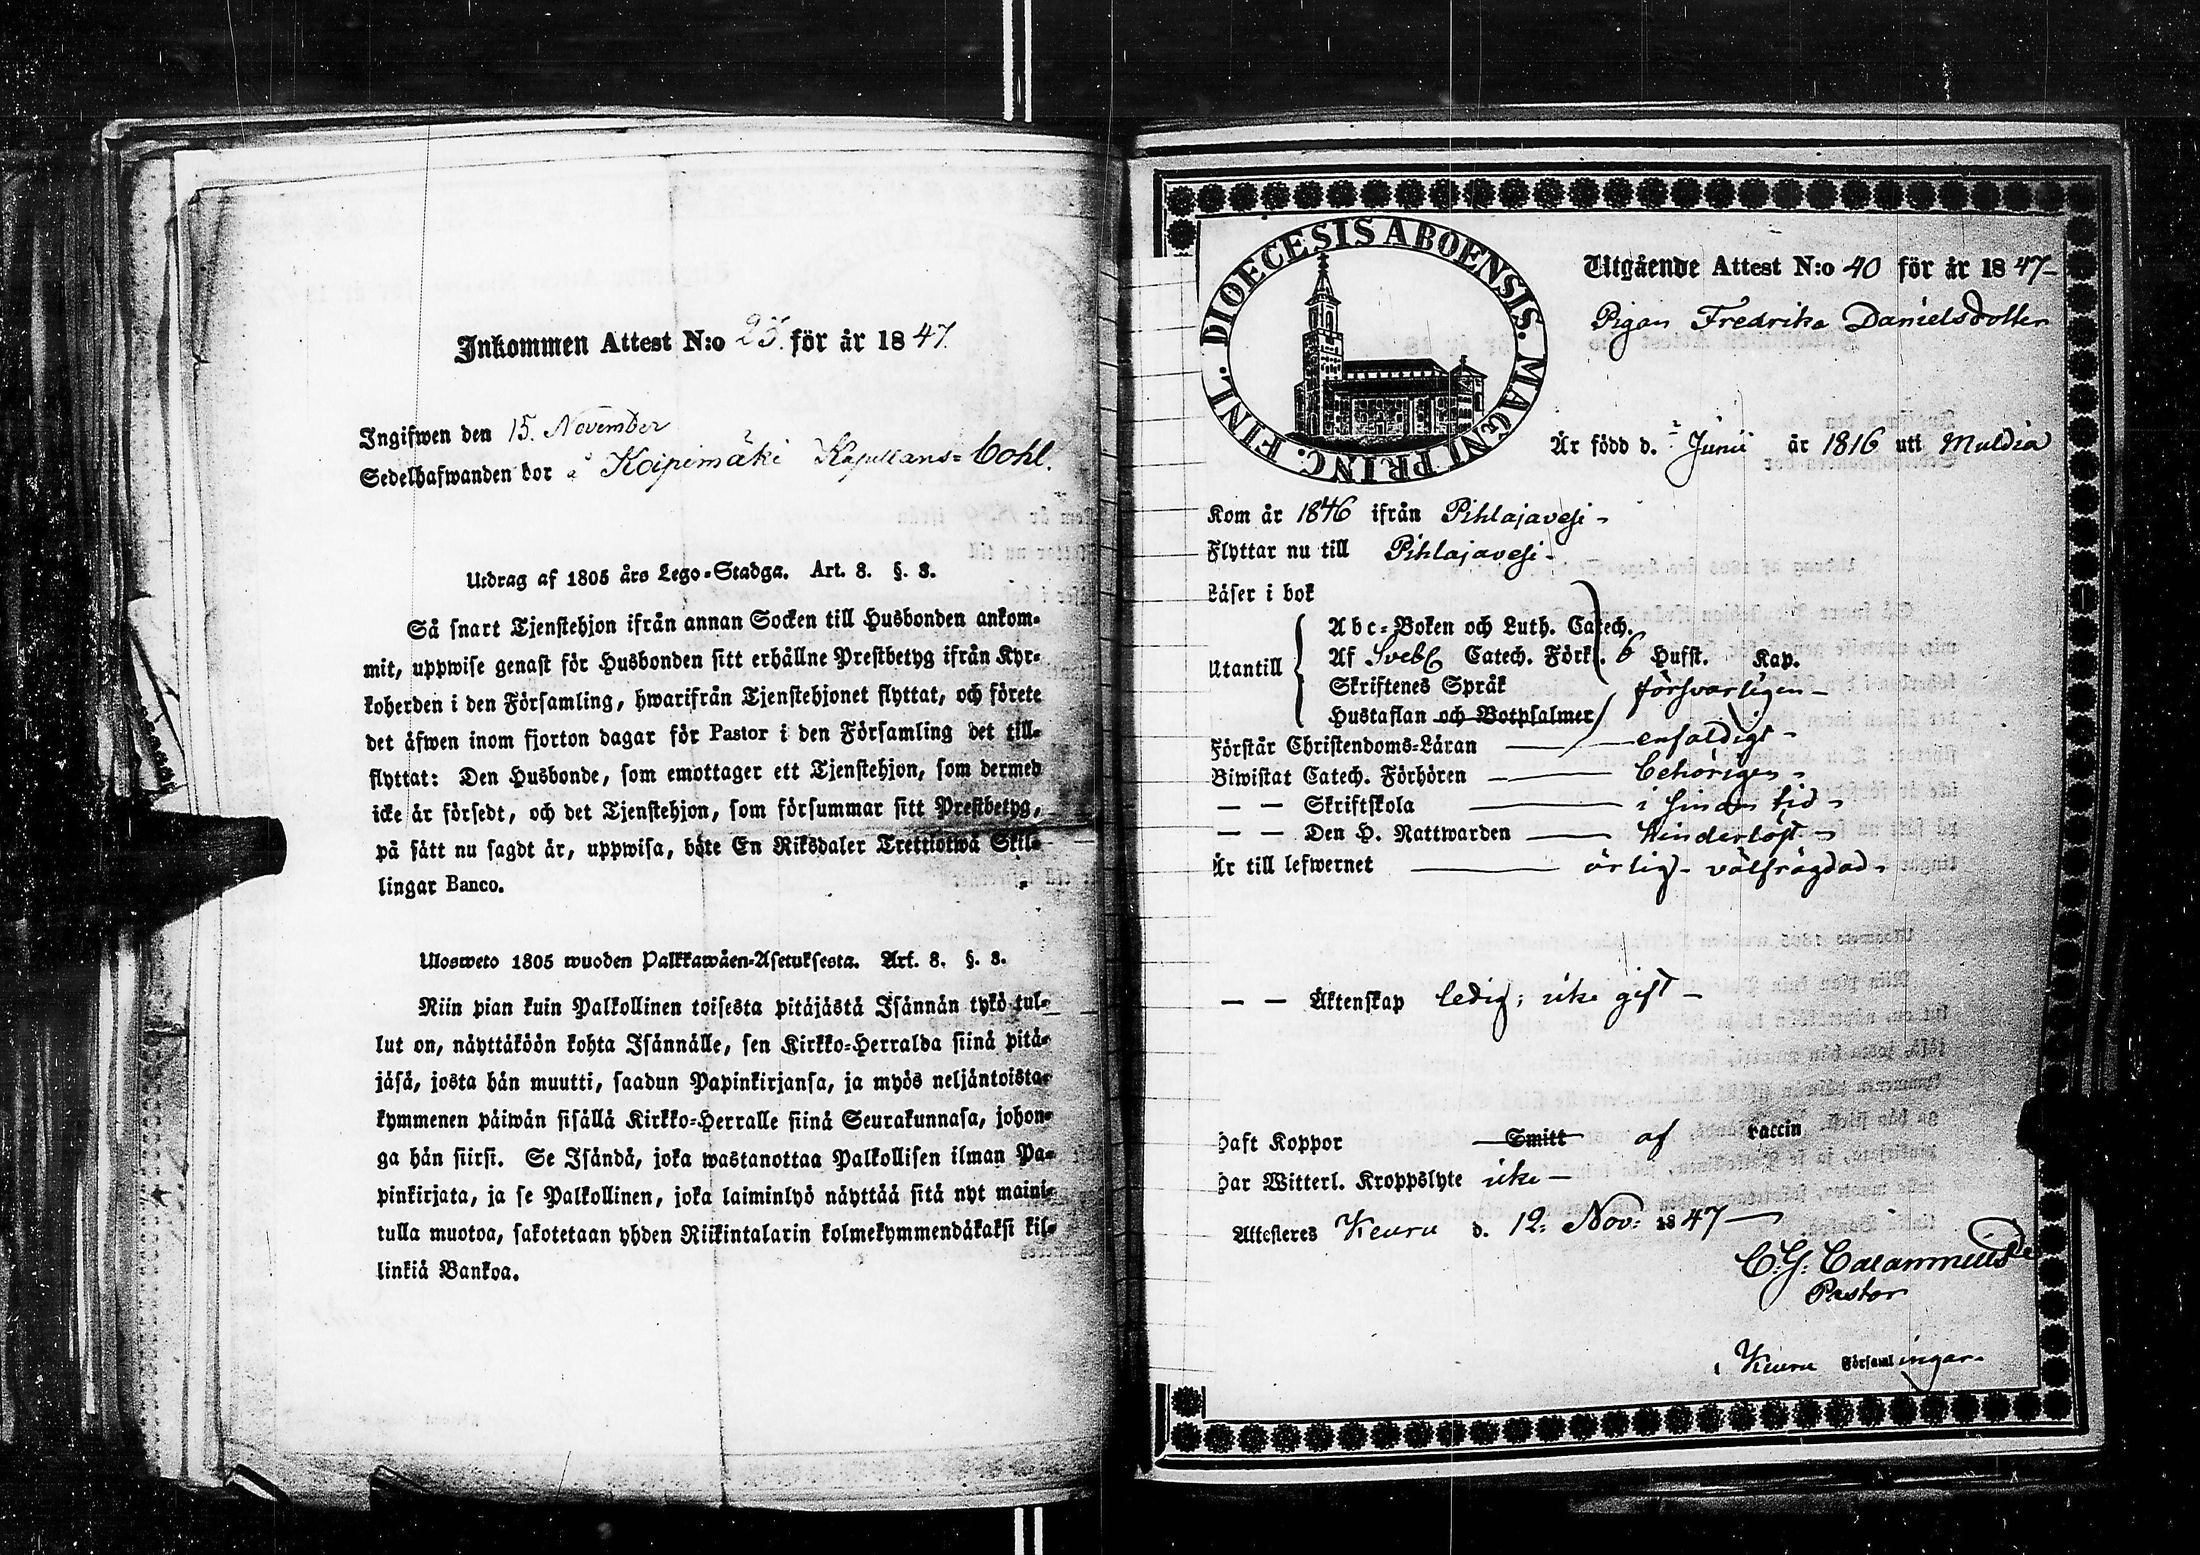 Inkommen Attest N:o 25. för år 1847.
Ingifwen den 15. November
Sedelhafwanden bor å Koipimäki Kapellans-Bohl.
Utdrag af 1805 års Lego-Stadga. Art. 8. §. 8.
Så snart Tjenstehjon ifrån annan Socken till Husbonden ankom-
mit, uppwise genast för Husbonden sitt erhållne Prestbetyg ifrån Kyr-
koherden i den Församling, hwarifrån Tjenstehjonet flyttat, och förete
det äfwen inom fjorton dagar för Pastor i den Församling det till-
flyttat: Den Husbonde, som emottager ett Tjenstehjon, som dermed
icke är försedt, och det Tjenstehjon, som försummar sitt Prestbetyg,
på sätt nu sagdt är, uppwisa, böte En Riksdaler Trettiotwå Skil-
lingar Banco.
Ulosweto 1805 wuoden Palkkawäen-Asetuksesta. Art. 8. §. 8.
Niin pian kuin Palkollinen toisesta pitäjästä Isännän tykö tul-
lut on, näyttäköön kohta Isännälle, sen Kirkko-Herralda siinä pitä-
jäsä, josta hän muutti, saadun Papinkirjansa, ja myös neljäntoista-
kymmenen päiwän sisällä Kirkko-Herralle siinä Seurakunnasa, johon-
ga hän siirsi. Se Isändä, joka wastanottaa Palkollisen ilman Pa-
pinkirjata, ja se Palkollinen, joka laiminlyö näyttää sitä nyt maini-
tulla muotoa, sakotetaan yhden Riikintalarin kolmekymmendäkaksi kil-
linkiä Bankoa.
DIOECESIS ABOENSIS. MAGNI PRINC. FINL.
Utgående Attest N:o 40 för år 1847-
Pigan Fredrika Danielsdotter
Är född d. 2 Junii år 1816 uti Muldia
Kom år 1846 ifrån Pihlajavesi-
Flyttar nu till Pihlajavesi-
Läser i bok
Utantill
Abc-Boken och Luth. Catech.
Af Svebl Catech. Förkl. 6 Hufst. Kap.
Skriftenes Språk försvarligen-
Hustaflan och Botpsalmer
Förstår Christendoms-Läran enfaldigt-
Biwistat Catech. Förhören behörigen-
— — Skriftskola i sinom tid-
— — Den H. Nattwarden hinderlöst-
Är till lefwernet ärlig- välfrägdad-
— — Äktenskap ledig; icke gift-
Haft Koppor Smitt af vaccin
Har Witterl. Kroppslyte icke-
Attesteres Keuru d. 12: Nov: 1847
Pastor
i Keuru Församlingar-